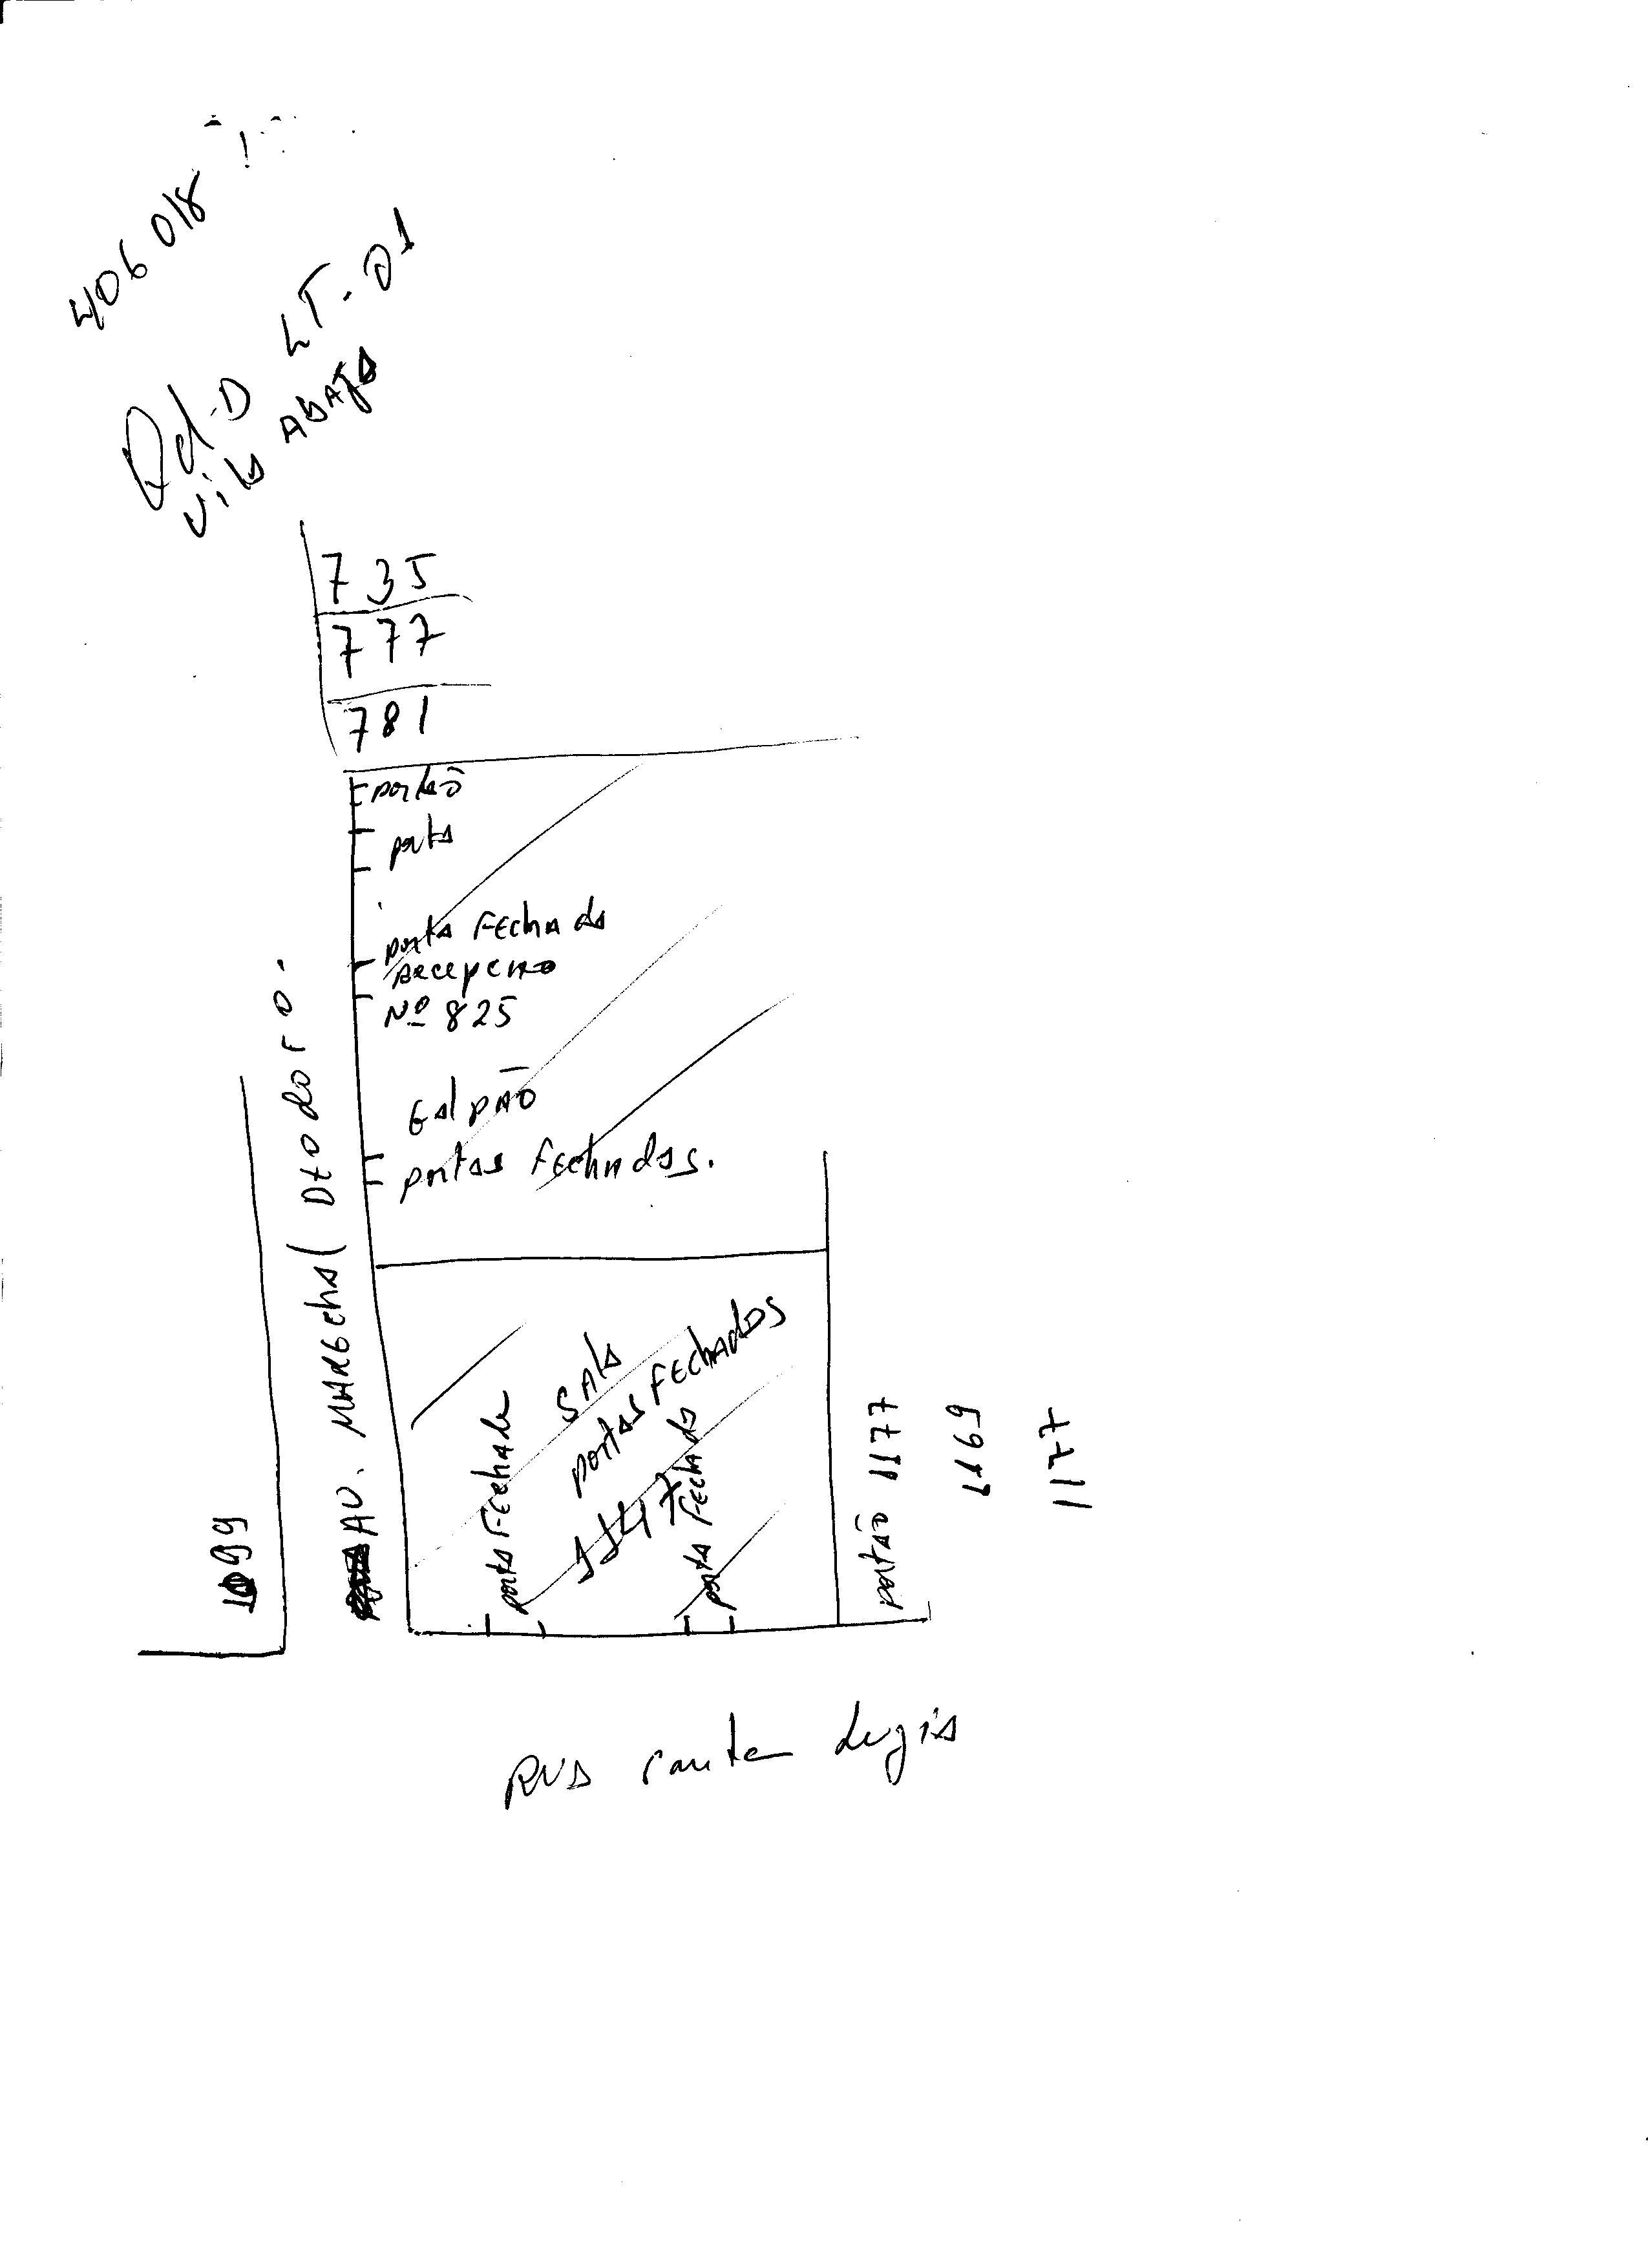 406 018
Qd-D LT-01
Vila Abaja
735
777
781
portão
porta
porta Fechada
Recepcno
Nº 825
Galpão
portas Fechadas.
AV. MARECHAl DEODORO.
1099
sala
portas Fechados
1147
porta Fechada
porta Fechada
portão 1177
1169
1177
RUA